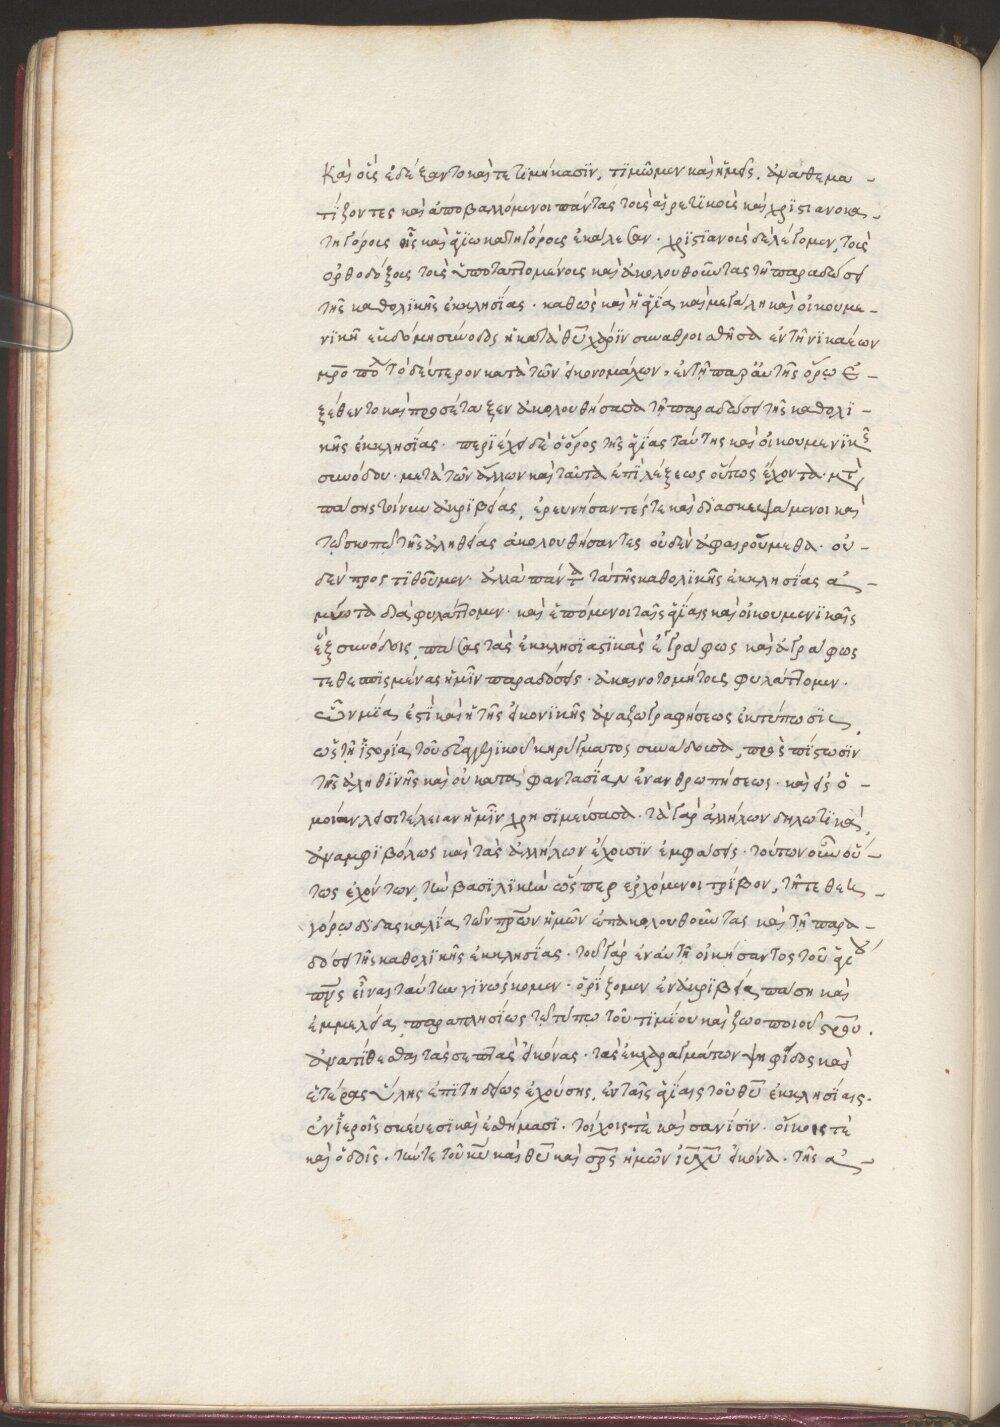 καὶ οἷς ἐδέξαντο καὶ τετϊμήκασϊν, τϊμῶμεν καὶ ἡμεῖς. ἀναθεμα-
τΐζοντες καὶ ἀποβαλλόμενοι πάντας τοὺς αἱρετϊκοὺς καὶ χρϊστιανοκα-
τηγόρους οὓς καὶ ἁγίω κατηγόρους ἐκάλεσαν. χρϊστϊανοὺς δὲ λέγομεν, τοὺς
ὀρθοδόξους τοὺς ὑποταττομένους καὶ ἀκολουθοῦντας τῆ παραδόσει
τῆς καθολϊκῆς ἐκκλησΐας. καθὼς καὶ ἡ ἁγΐα καὶ μεγάλη καὶ οἰκουμε-
νϊκὴ ἑβδόμη σύνοδος ἡ κατὰ θῦ χάρϊν συναθροισθῆσα ἐν τῆ νϊκαέων
μρο πο τὸ δεύτερον κατὰ τῶν εἰκονομάχων, ἐν τῆ παρ' αὐτῆς ὅρω ἐ-
ξέθεντο καὶ προσέταξεν ἀκολουθήσασα τῆ παραδόσει τῆς καθολϊ-
κῆς ἐκκλησΐας. περϊέχει δὲ ὁ ὅρος τῆς ἁγΐας ταύτης καὶ οἰκουμενϊκῆς
συνόδου. μετὰ τῶν ἄλλων καὶ ταῦτα ἐπϊ λέξεως οὕτως ἔχοντα. μτ
πάσης τοίνυν ἀκρϊβείας, ἐρευνήσαντές τε καὶ διασκεψάμενοι καὶ
τῶ σκοπῶ τῆς ἀληθείας ἀκολουθήσαντες οὐδὲν ἀφαιρούμεθα. οὐ-
δὲν προστϊθοῦμεν. ἀλλὰ πάντα τὰ τῆς καθολϊκῆς ἐκκλησΐας ἀ-
μείωτα διαφυλάττομεν. καὶ ἑπόμενοι ταῖς ἁγΐαις καὶ οἰκουμενϊκαῖς
ἓξ συνόδοις, πάσας τὰς ἐκκλησϊαστϊκὰς ἐγγράφως καὶ ἀγράφως
τεθεσπϊσμένας ἡμῖν παραδόσεις. ἀκαινοτομήτους φυλάττομεν.
ὧν μΐα ἐστὶ καὶ ἡ τῆς εἰκονϊκῆς ἀναζωγραφήσεως ἐκτύπωσϊς,
ὡς τῆ ἱστορΐα τοῦ εὐαγγελϊκοῦ κηρύγματος συνάδουσα, πρὸς πΐστωσϊν
τῆς ἀληθϊνῆς καὶ οὐ κατὰ φαντασΐαν ἐνανθρωπήσεως. καὶ εἰς ὁ-
μοίαν λυσιτέλειαν ἡμῖν χρησϊμεύουσα. τὰ γὰρ ἀλλήλων δηλωτϊκὰ,
ἀναμφϊβόλως καὶ τὰς ἀλλήλων ἔχουσϊν ἐμφάσεις. τούτων οὖν οὕ-
τως ἐχόντων, τὴν βασϊλϊκὴν ὥσπερ ἐρχόμενοι τρΐβον, τῆ τε θεη-
γόρω δϊδασκαλΐα τῶν πρων ἡμῶν ἐπακολουθοῦντες καὶ τῆ παρα-
δόσει τῆς καθολϊκῆς ἐκκλησΐας. τοῦ γὰρ ἐν αὐτῆ οἰκήσαντος τοῦ ἁγίου
πνς εἶναι ταύτην γϊνώσκομεν. ὁρΐζομεν ἐν ἀκρϊβεία πάση καὶ
ἐμμελεία παραπλησΐως τῶ τύπω τοῦ τϊμίου καὶ ζωοποιοῦ στρου.
ἀνατΐθεσθαι τὰς σεπτὰς εἰκόνας. τὰς ἐκ χρωμάτων ψηφΐδος καὶ
ἑτέρας ὕλης ἐπϊτηδείως ἐχούσης, ἐν ταῖς ἁγΐαις τοῦ θῦ ἐκκλησΐαις.
ἐν ἱεροῖς σκεύεσϊ καὶ ἐσθήμασϊ. τοίχοις τὲ καὶ σανΐσϊν. οἴκοις τὲ
καὶ ὁδοῖς. τήν τε τοῦ κυ καὶ θυ καὶ σρς ἡμῶν ιυχυ εἰκόνα. τῆς ἀ-